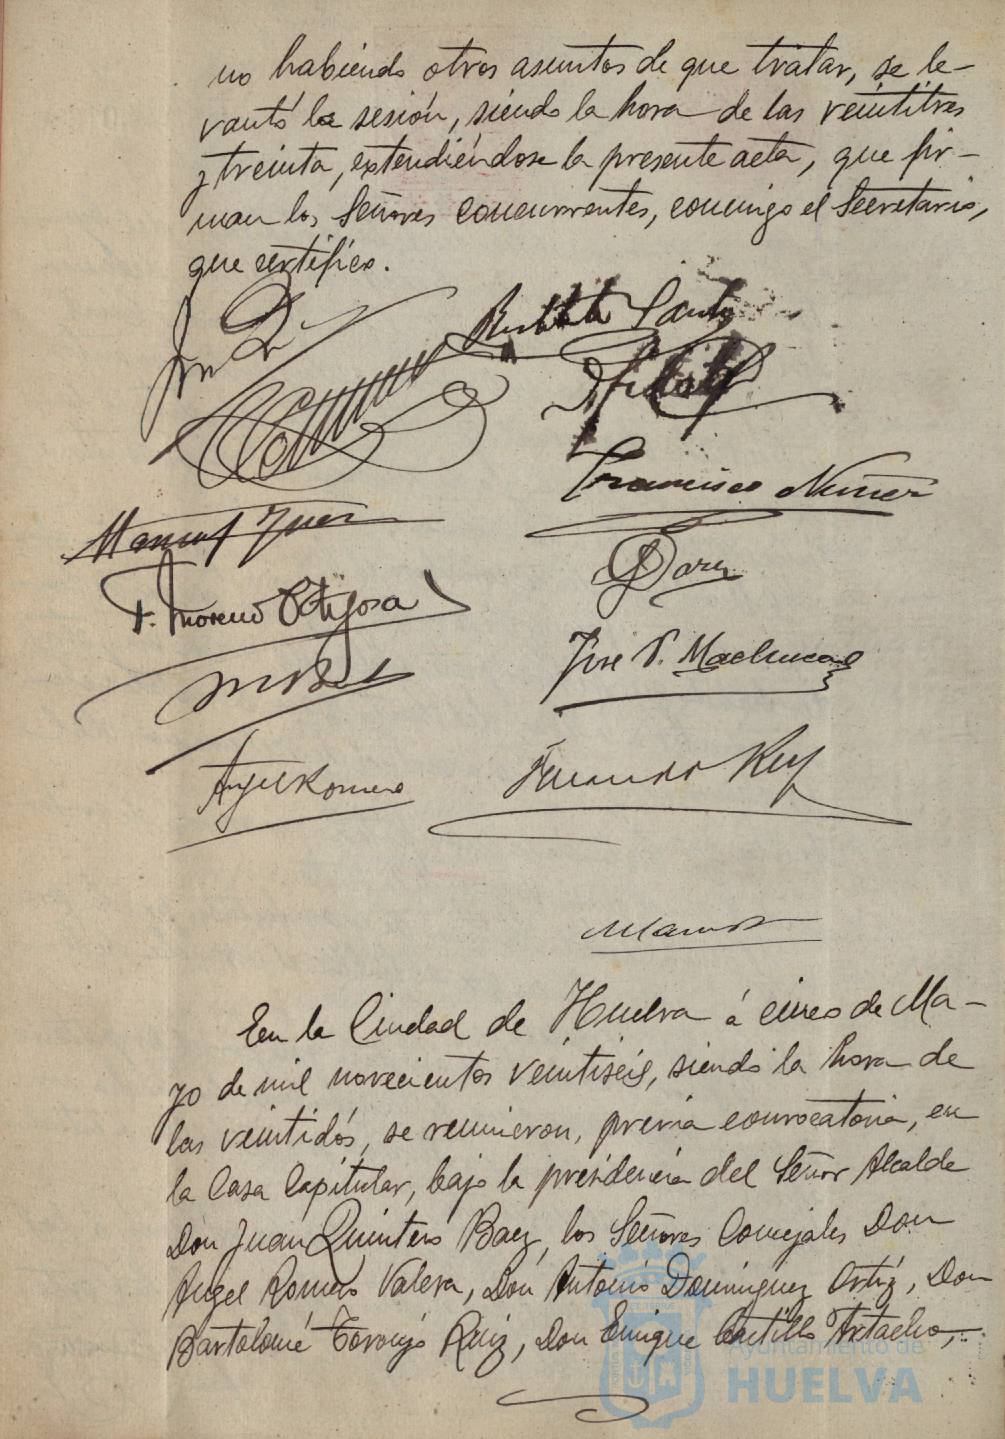 no habiendo otros asuntos de que tratar, se le-
vantó la sesión, siendo la hora de las veintitres
y treinta, extendiéndose la presente acta, que fir-
man los Señores concurrentes, conmigo el Secretario,
que certifico.
Francisco Nuñez
Manuel
F. Moreno Ortigosa
José P. Machuca
Angel Romero
Fernando Rey
En la Ciudad de Huelva á cinco de Ma-
yo de mil novecientos veintiseis, siendo la hora de
las veintidós, se reunieron, previa convocatoria, en
la Casa Capitular, bajo la presidencia del Señor Alcalde
Don Juan Quintero Baez, los Señores Concejales Don
Angel Romero Valera, Don Antonio Dominguez Ortíz, Don
Bartolomé Toronjo Ruiz, Don Enrique Castillo Artacho,
Ayuntamiento de
HUELVA